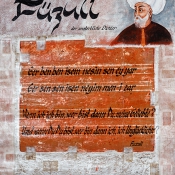 Füzuli
der unsterbliche Dichter
Ger ben ben isem nesin sen ey yar
Ger sen sen isen neyim men-i zar
Wenn ich ich bin, wer bist dann Du, meine Geliebte?
Und wenn Du Du bist, wer bin dann ich, ich Unglücklicher?
Fuzuli